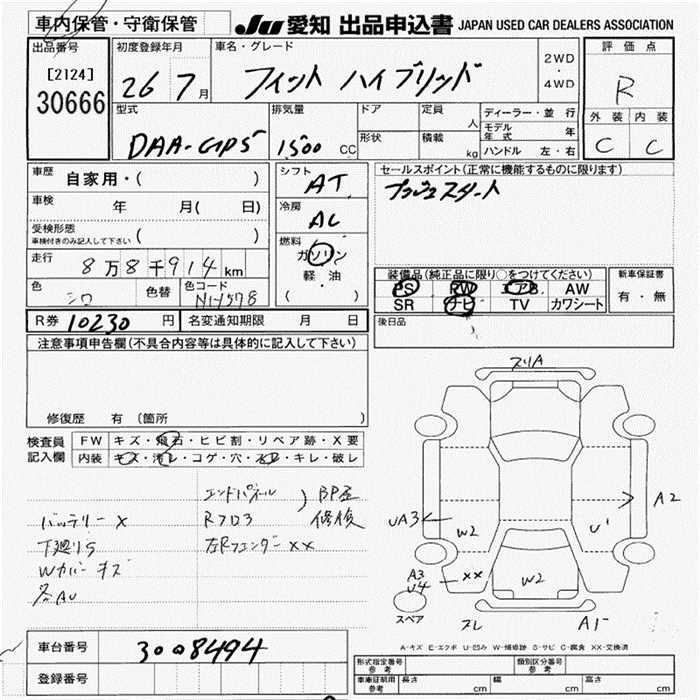 車内保管・守衛保管
JU 愛知 出品申込書 JAPAN USED CAR DEALERS ASSOCIATION
出品番号
[2124]
30666
初度登録年月
26 7月
車名・グレード
フィット ハイブリッド
2WD
・
4WD
評価点
R
外装 内装
C C
型式
DAA-GP5
排気量
1500 CC
ドア
形状
定員
人
積載
kg
ディーラー・並行
モデル年式 年
ハンドル 左・右
車歴 自家用・( )
車検 年 月( 日)
受検形態
車検付きのみ記入して下さい ( )
走行 8万8千914km
色 シロ 色替 色コード NH578
シフト
AT
冷房
AC
燃料
ガソリン
軽・油
( )
セールスポイント(正常に機能するものに限ります)
プッシュスタート
装備品(純正品に限り○をつけてください)
PS PW エアB AW
SR ナビ TV カワシート
新車保証書
有・無
R券 10230 円 名変通知期限 月 日
後日品
注意事項申告欄(不具合内容等は具体的に記入して下さい)
修復歴 有 (箇所 )
検査員記入欄
FW キズ・飛石・ヒビ割・リペア跡・X要
内装 キズ・汚レ・コゲ・穴・スレ・キレ・破レ
エンドパネル
Rフロア
左Rフェンダーxx
バッテリーx
下廻りS
Wカバーキズ
各AU
スリA
UA3
W2
U'
A2
A3
U4
xx
W2
スペア
スレ
A1
A-キズ E-エクボ U-凹み W-補修跡 S-サビ C-腐食 XX-交換済
車台番号 3008494
登録番号
形式指定番号
参考
類別区分番号
参考
車庫証明用
参考
長さ cm 幅 cm 高さ cm